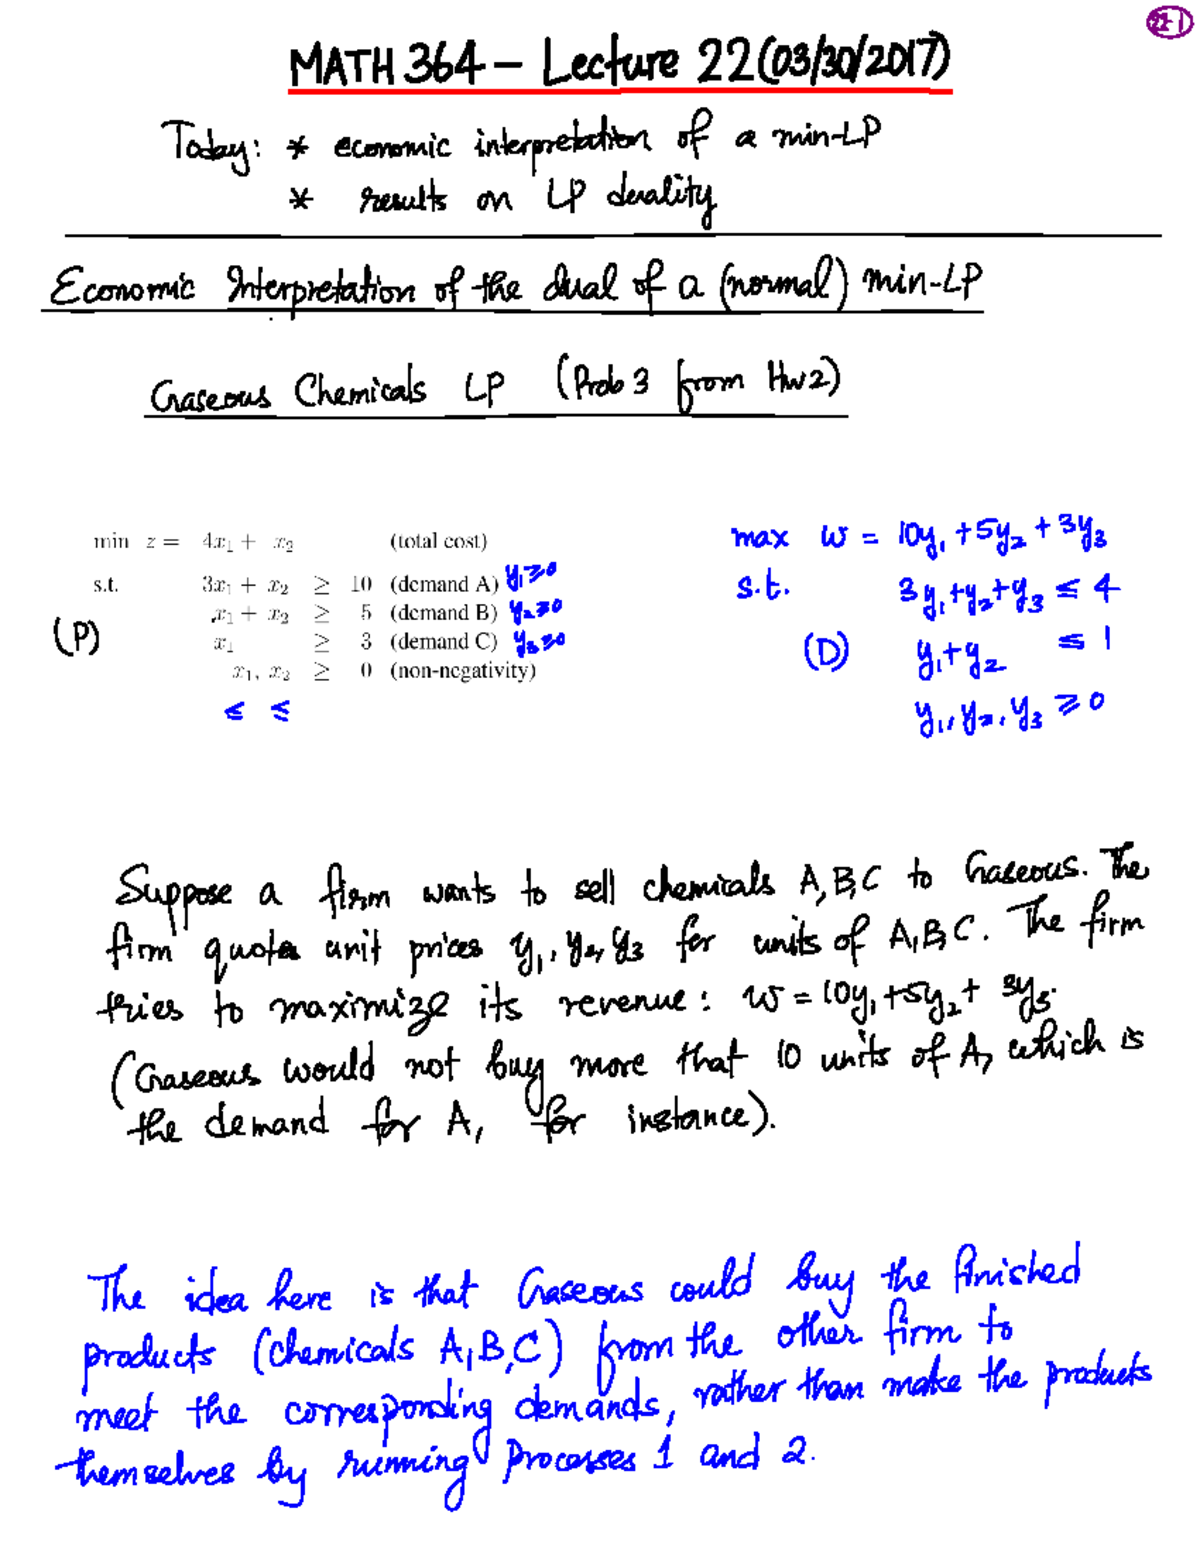 22-1
MATH 364 – Lecture 22 (03/30/2017)
Today: * economic interpretation of a min-LP
* results on LP duality
Economic Interpretation of the dual of a (normal) min-LP
Gaseous Chemicals LP (Prob 3 from Hw2)
min z = 4x₁ + x₂ (total cost)
s.t. 3x₁ + x₂ ≥ 10 (demand A) y₁≥0
x₁ + x₂ ≥ 5 (demand B) y₂≥0
(P) x₁ ≥ 3 (demand C) y₃≥0
x₁, x₂ ≥ 0 (non-negativity)
≤ ≤
max w = 10y₁ + 5y₂ + 3y₃
s.t. 3y₁+y₂+y₃ ≤ 4
(D) y₁+y₂ ≤ 1
y₁, y₂, y₃ ≥ 0
Suppose a firm wants to sell chemicals A,B,C to Gaseous. The
firm quotes unit prices y₁, y₂, y₃ for units of A,B,C. The firm
tries to maximize its revenue: w = 10y₁+5y₂+ 3y₃.
(Gaseous would not buy more that 10 units of A, which is
the demand for A, for instance).
The idea here is that Gaseous could buy the finished
products (chemicals A,B,C) from the other firm to
meet the corresponding demands, rather than make the products
themselves by running Processes 1 and 2.